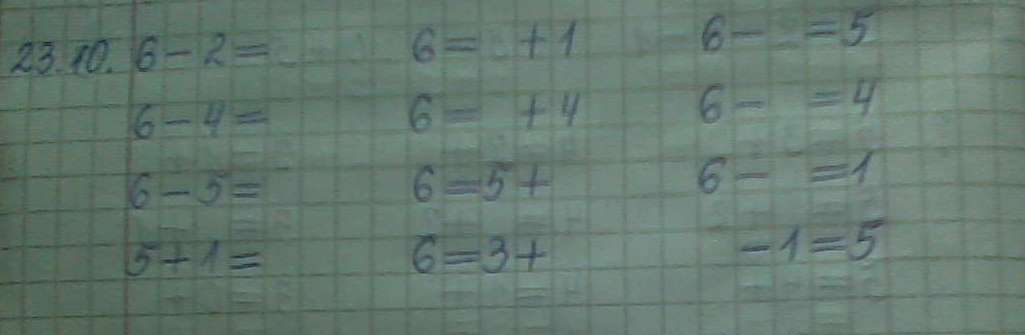 23.10. 6-2= 6= +1 6- =5
6-4= 6= +4 6- =4
6-5= 6=5+ 6- =1
5+1= 6=3+ -1=5